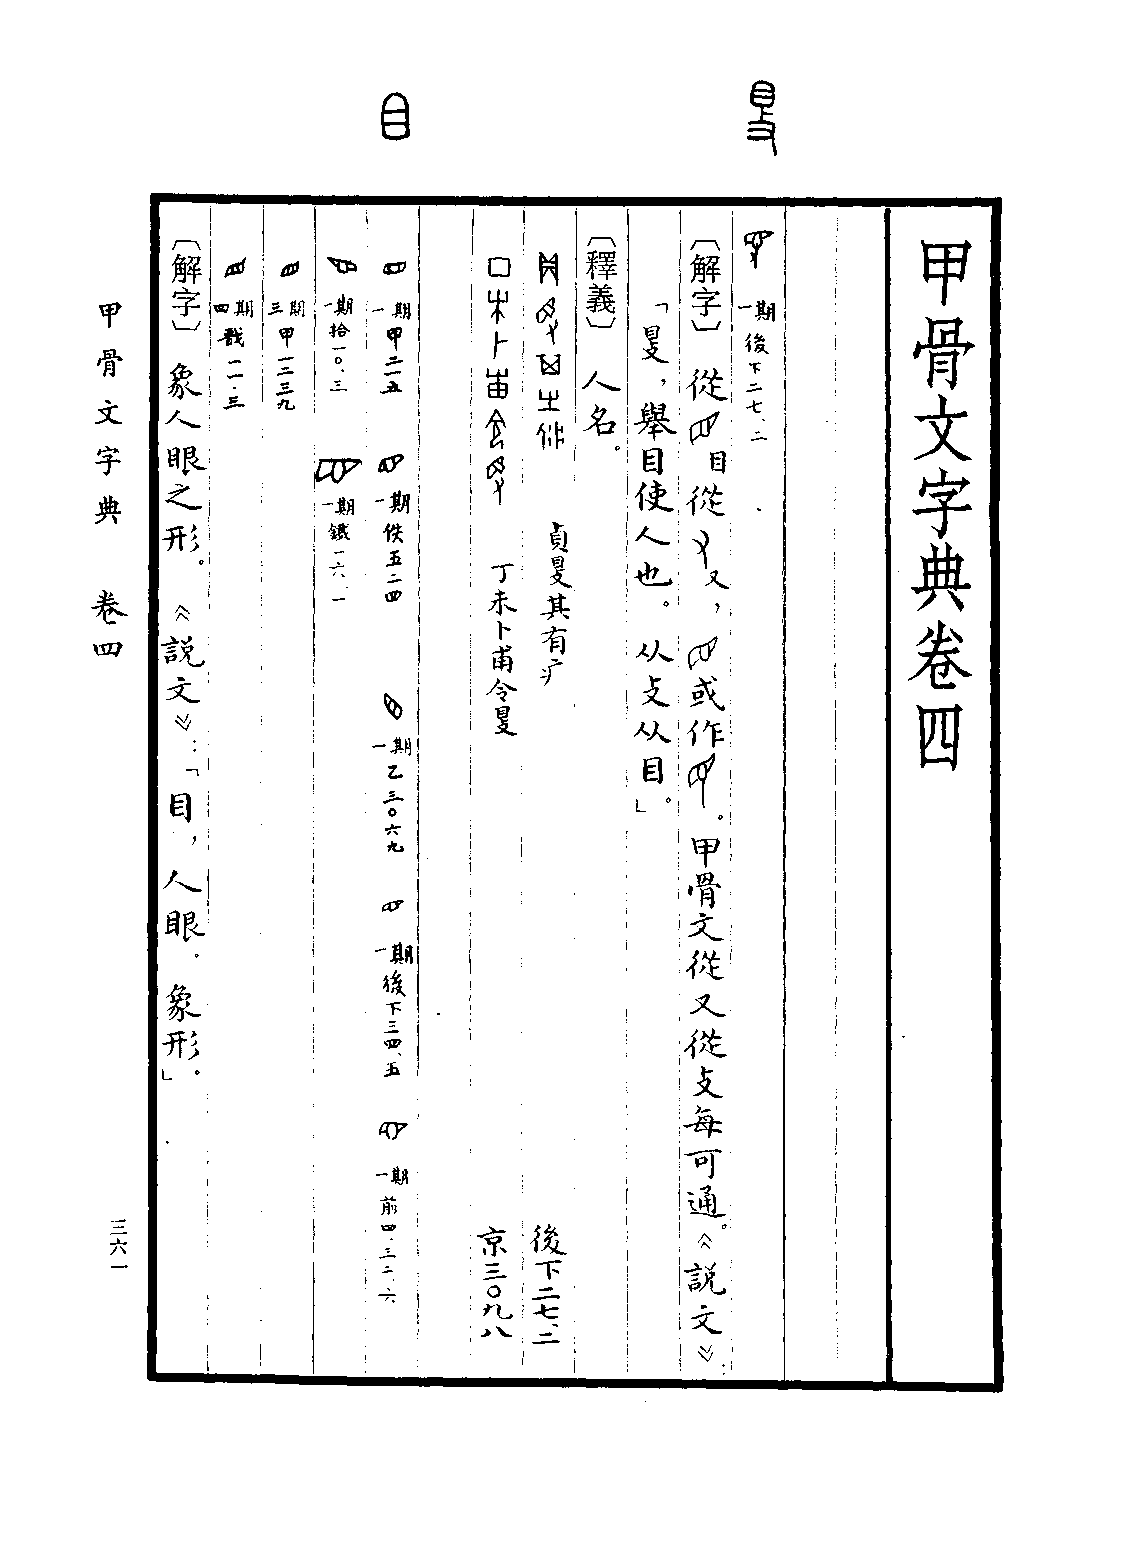 甲骨文字典卷四
一期 後下二七.二
〔解字〕從目從又，或作。甲骨文從又從攴每可通。《説文》：
「𥄎，舉目使人也。从攴从目。」
〔釋義〕人名。
貞𥄎其有疒 後下二七、二
丁未卜甫令𥄎 京三〇九八
目
一期 甲二一五 一期 佚五二四 一期 乙三〇六九 一期 後下三四、五 一期 前四.三二.六
一期 拾一〇.三 一期 鐵一六.一
三期 甲一二三九
四期 戩一一.三
〔解字〕象人眼之形。《説文》：「目，人眼。象形。」
甲骨文字典 卷四
三六一